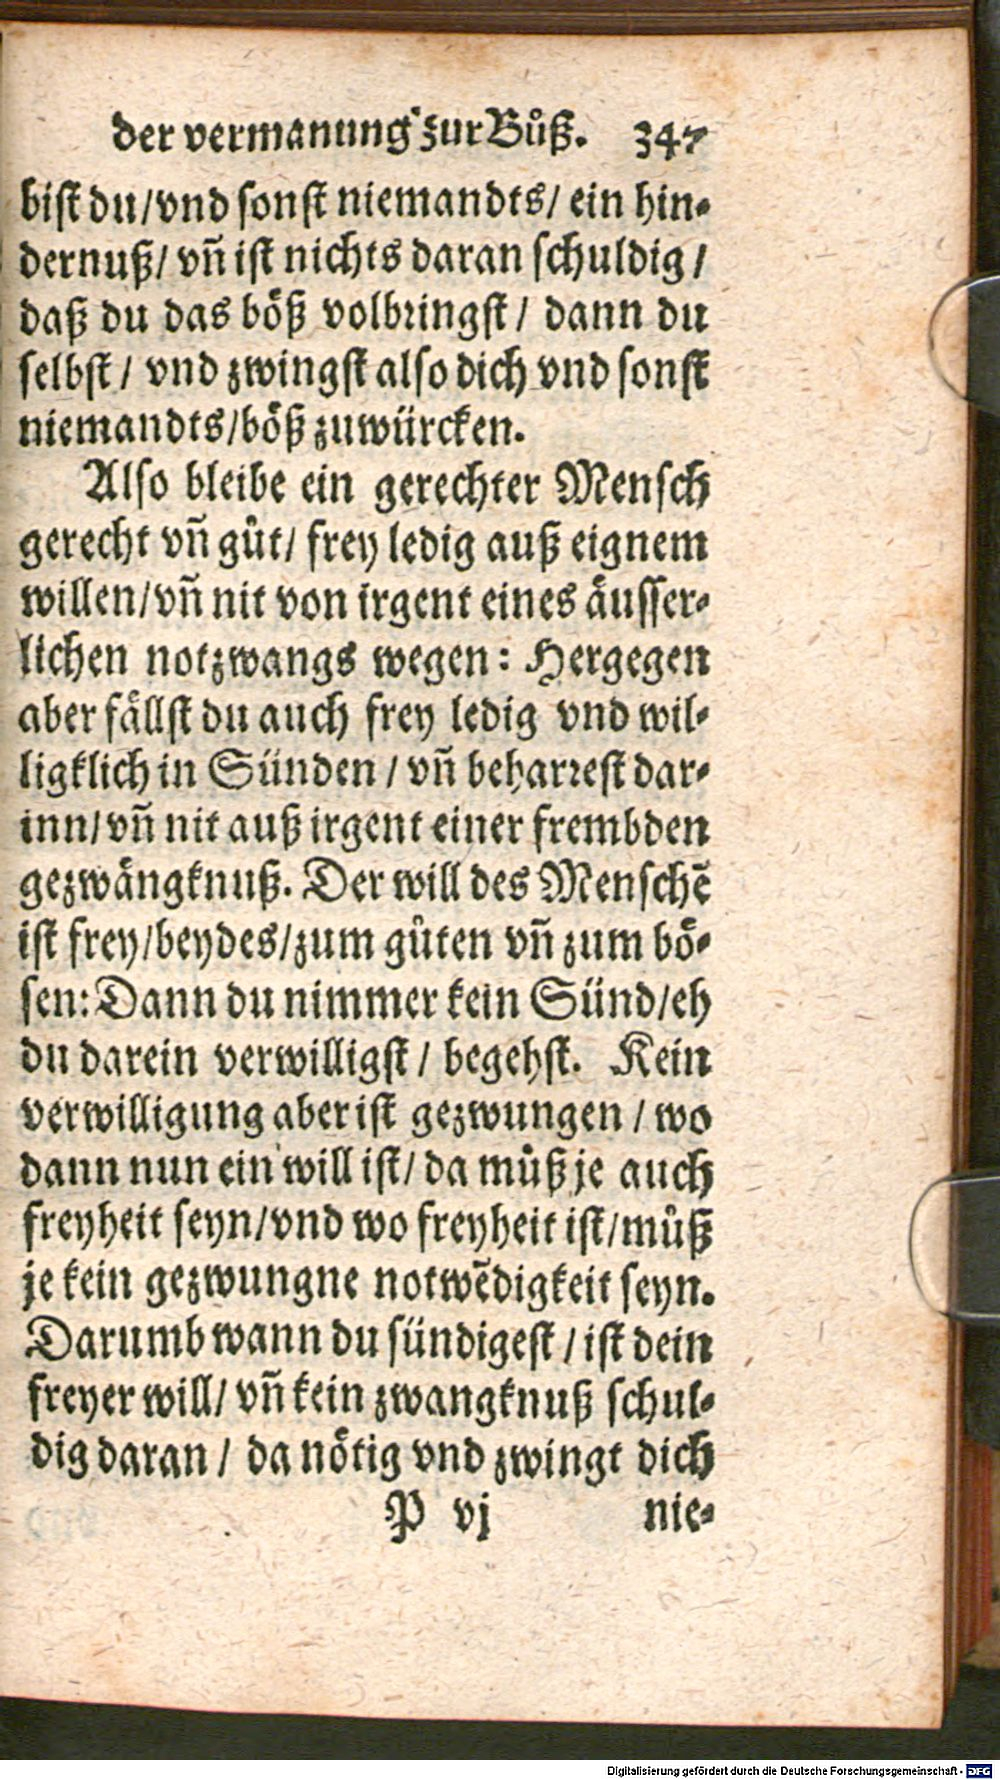 der vermanung zur Bůß. 347
bist du/vnd sonst niemandts/ ein hin-
dernuß/ vñ ist nichts daran schuldig /
daß du das böß volbringst / dann du
selbst / vnd zwingst also dich vnd sonst
niemandts/böß zuwürcken.
Also bleibe ein gerechter Mensch
gerecht vñ gůt/ frey ledig auß eignem
willen/vñ nit von irgent eines äusser-
lichen notzwangs wegen: Hergegen
aber fällst du auch frey ledig vnd wil-
ligklich in Sünden / vñ beharrest dar-
inn/vñ nit auß irgent einer frembden
gezwängknuß. Der will des Menschē
ist frey/beydes/zum gůten vñ zum bö-
sen: Dann du nimmer kein Sünd/eh
du darein verwilligst / begehst. Kein
verwilligung aber ist gezwungen / wo
dann nun ein will ist/ da můß je auch
freyheit seyn/vnd wo freyheit ist/můß
je kein gezwungne notwēdigkeit seyn.
Darumb wann du sündigest / ist dein
freyer will/ vñ kein zwangknuß schul-
dig daran / da nötig vnd zwingt dich
P vj nie-
Digitalisierung gefördert durch die Deutsche Forschungsgemeinschaft - DFG